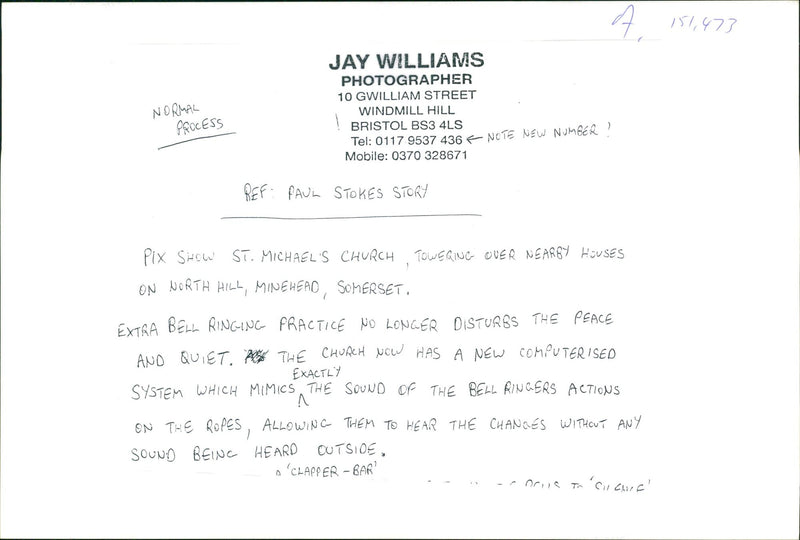 A, 151,473
JAY WILLIAMS
PHOTOGRAPHER
10 GWILLIAM STREET
WINDMILL HILL
BRISTOL BS3 4LS
Tel: 0117 9537 436 ← NOTE NEW NUMBER !
Mobile: 0370 328671
NORMAL
PROCESS
REF: PAUL STOKES STORY
PIX SHOW ST. MICHAEL'S CHURCH, TOWERING OVER NEARBY HOUSES
ON NORTH HILL, MINEHEAD, SOMERSET.
EXTRA BELL RINGING PRACTICE NO LONGER DISTURBS THE PEACE
AND QUIET. THE CHURCH NOW HAS A NEW COMPUTERISED
SYSTEM WHICH MIMICS EXACTLY THE SOUND OF THE BELL RINGERS ACTIONS
ON THE ROPES, ALLOWING THEM TO HEAR THE CHANGES WITHOUT ANY
SOUND BEING HEARD OUTSIDE.
A 'CLAPPER-BAR'
TO 'SILENCE'